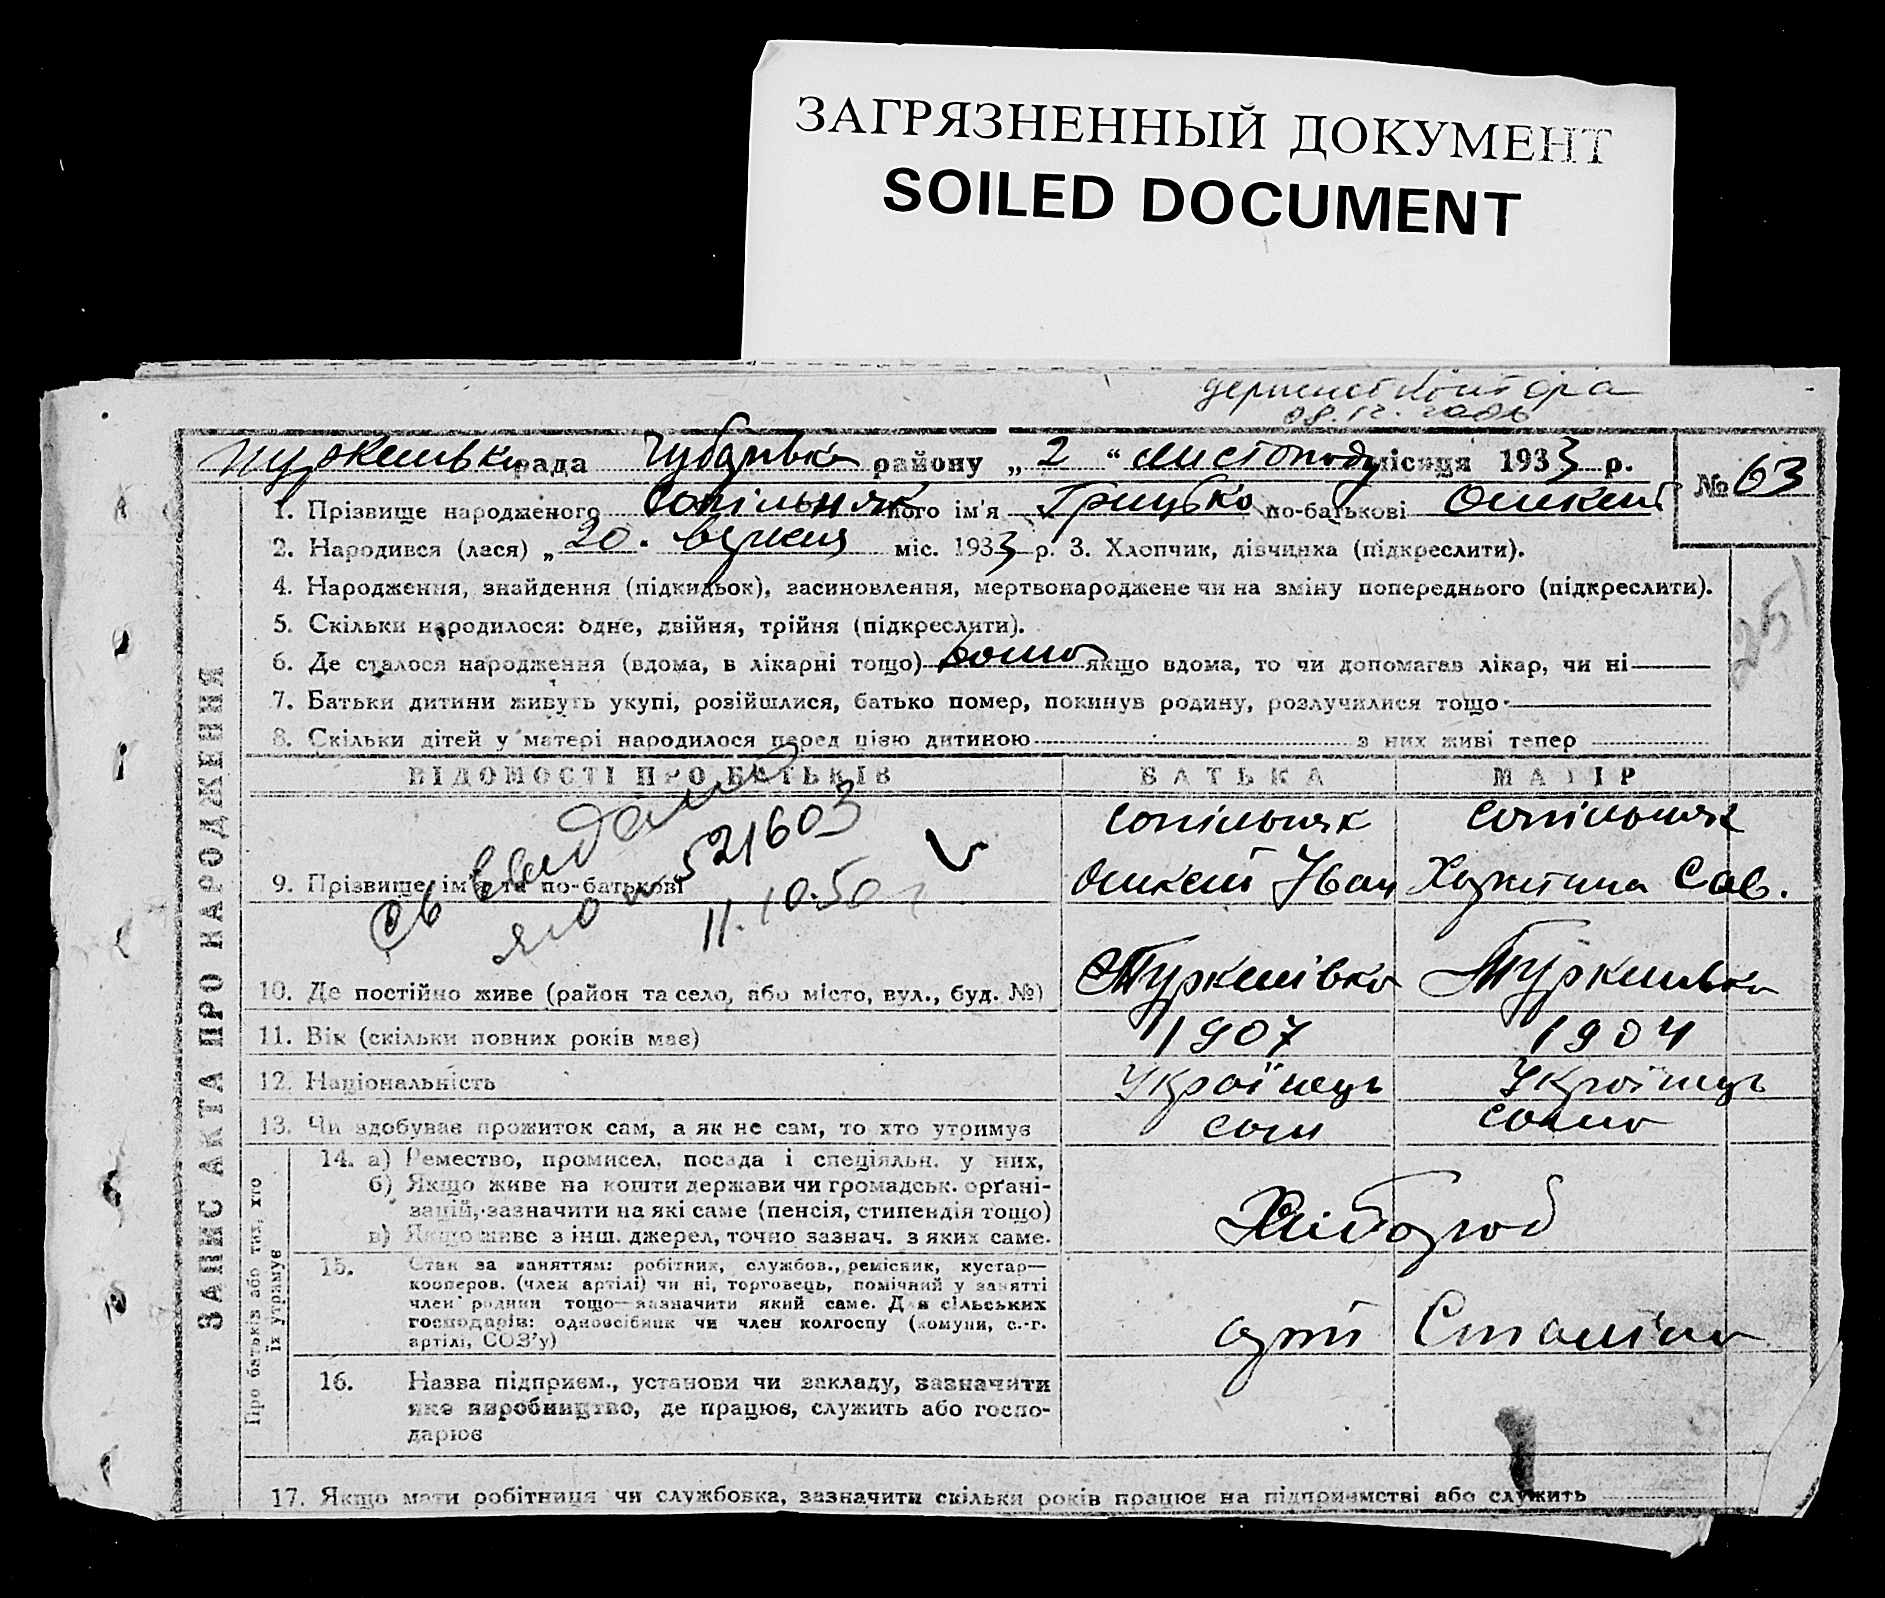 ЗАГРЯЗНЕННЫЙ ДОКУМЕНТ
SOILED DOCUMENT
рада району „2“ листопаду місяця 1933 р.
№ 63
1. Прізвище народженого Сопільняк його ім'я Грицько по-батькові
2. Народився (лася) „20. вересня міс. 1933 р. 3. Хлопчик, дівчинка (підкреслити).
4. Народження, знайдення (підкидьок), засиновлення, мертвонароджене чи на зміну попереднього (підкреслити).
5. Скільки народилося: одне, двійня, трійня (підкреслити).
6. Де сталося народження (вдома, в лікарні тощо) якщо вдома, то чи допомагав лікар, чи ні
7. Батьки дитини живуть укупі, розійшлися, батько помер, покинув родину, розлучилися тощо
8. Скільки дітей у матері народилося перед цією дитиною з них живі тепер
ЗАПИС АКТА ПРО НАРОДЖЕННЯ
ВІДОМОСТІ ПРО БАТЬКІВ БАТЬКА МАТІР
521603
11.10.50
Сопільняк Сопільняк
9. Прізвище, ім'я та по-батькові Іван Сав.
10. Де постійно живе (район та село, або місто, вул., буд. №) Туркенівка Туркенівка
11. Вік (скільки повних років має) 1907 1904
12. Національність Українець Українець
13. Чи здобуває прожиток сам, а як не сам, то хто утримує сам сама
Про батьків або тих, хто їх утримує
14. а) Ремество, промисел, посада і спеціяльн. у них,
б) Якщо живе на кошти держави чи громадськ. орґані-
зацій, зазначити на які саме (пенсія, стипендія тощо)
в) Якщо живе з інш. джерел, точно зазнач. з яких саме.
Хлібороб
15. Стан за заняттям: робітник, службов., ремісник, кустар—
кооперов. (член артілі) чи ні, торговець, помічний у занятті
член родини тощо—зазначити який саме. Для сільських
господарів: одноосібник чи член колгоспу (комуни, с.-г.
артілі, СОЗ'у)
арт Сталіна
16. Назва підприєм., установи чи закладу, зазначити
яке виробництво, де працює, служить або госпо-
дарює
17. Якщо мати робітниця чи службовка, зазначити скільки років працює на підприємстві або служить